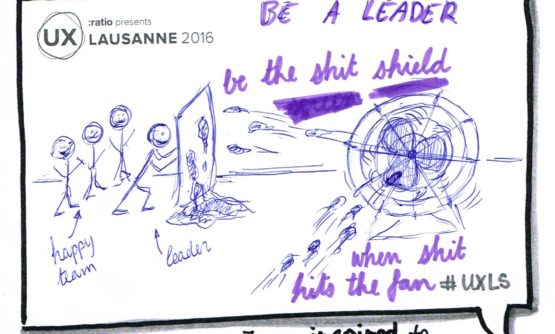 :ratio presents
UX LAUSANNE 2016
BE A LEADER
be the shit shield
happy team
leader
when shit
hits the fan #UXLS
inspired to